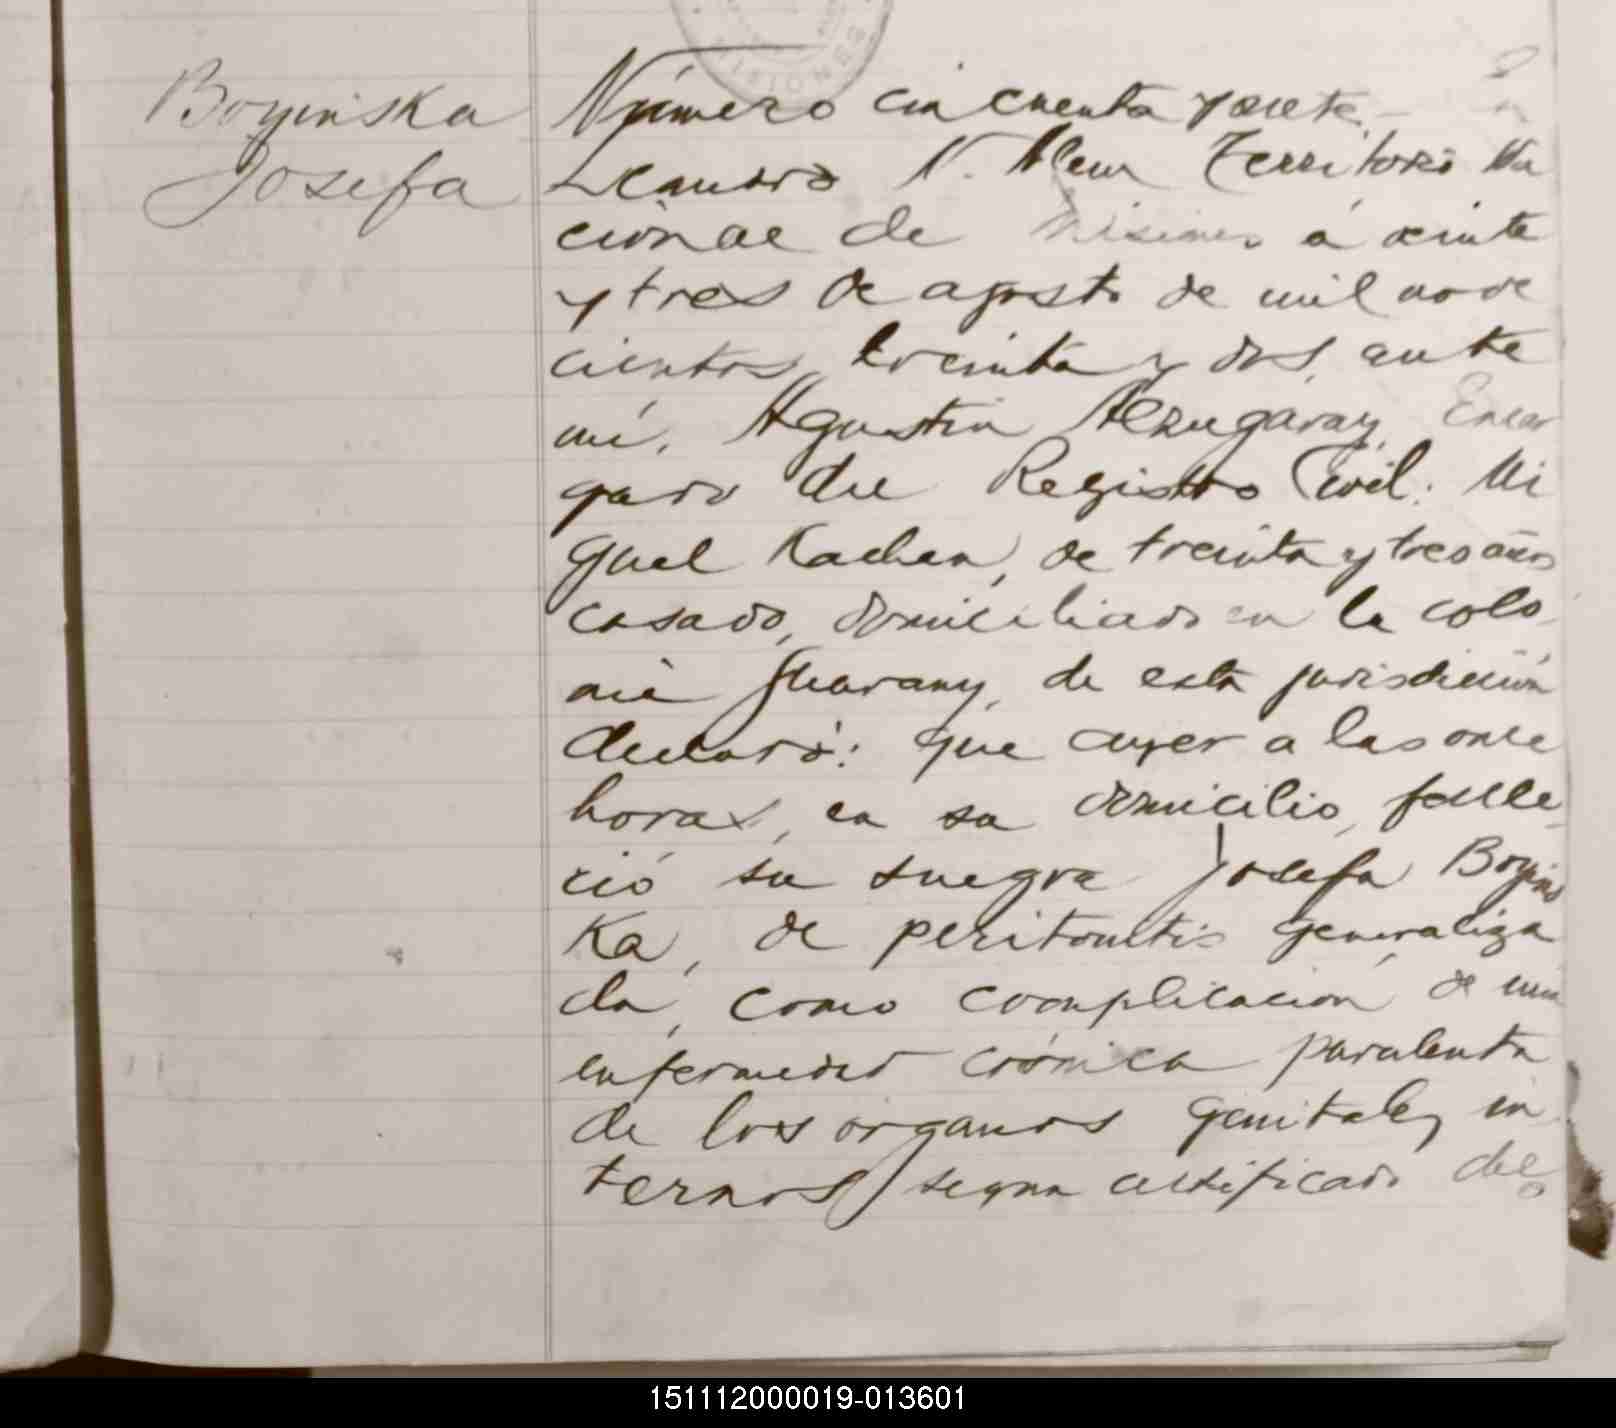 MISIONES
Boyinska
Josefa
Número cincuenta y siete.-
Leandro N. Alem Territorio Na
cional de Misiones a veinte
y tres de agosto de mil nove
cientos treinta y dos, ante
mí, Agustin Alzugaray, Encar
gado del Registro Civil: Mi
guel Kachan, de treinta y tres años
casado, domiciliado en la colo
nia Guarany, de esta jurisdicción
declaró: que ayer a las once
horas, en su domicilio, falle
ció su suegra Josefa Boyins
ka, de peritonitis generaliza
da, como complicación de una
enfermedad crónica purulenta
de los organos genitales in
ternos segun certificado del
151112000019-013601